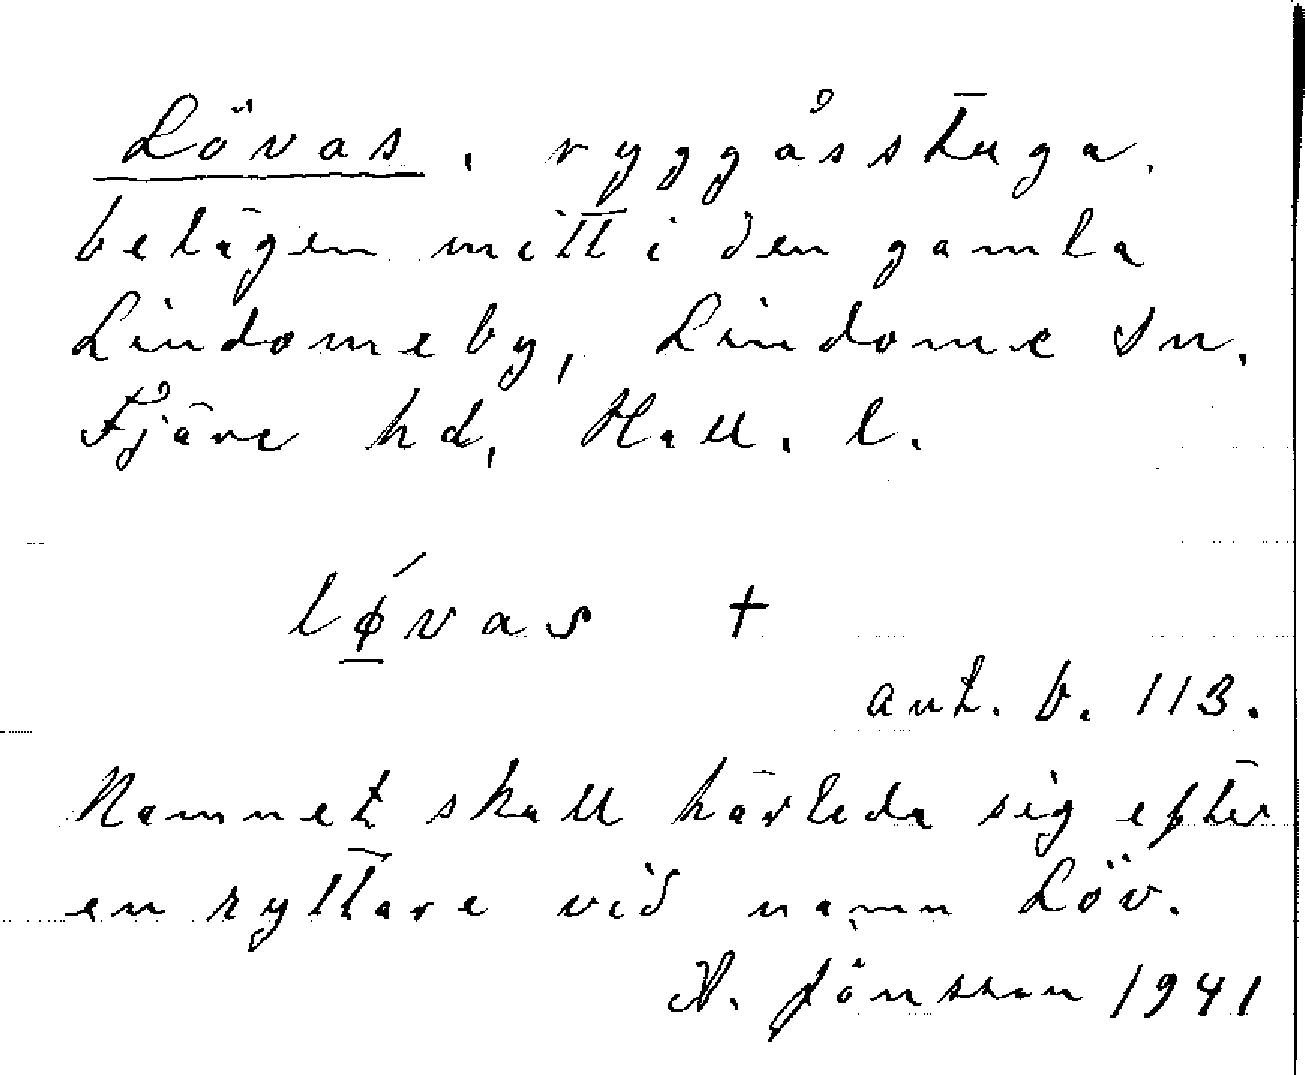 Lövas, ryggåsstuga,
belägen mitt i den gamla
Lindomeby, Lindome sn,
Fjäre hd, Hall. l.
lǿ̲vas †
ant. b. 113.
Namnet skall härleda sig efter
en ryttare vid namn Löv.
A. Jönsson 1941